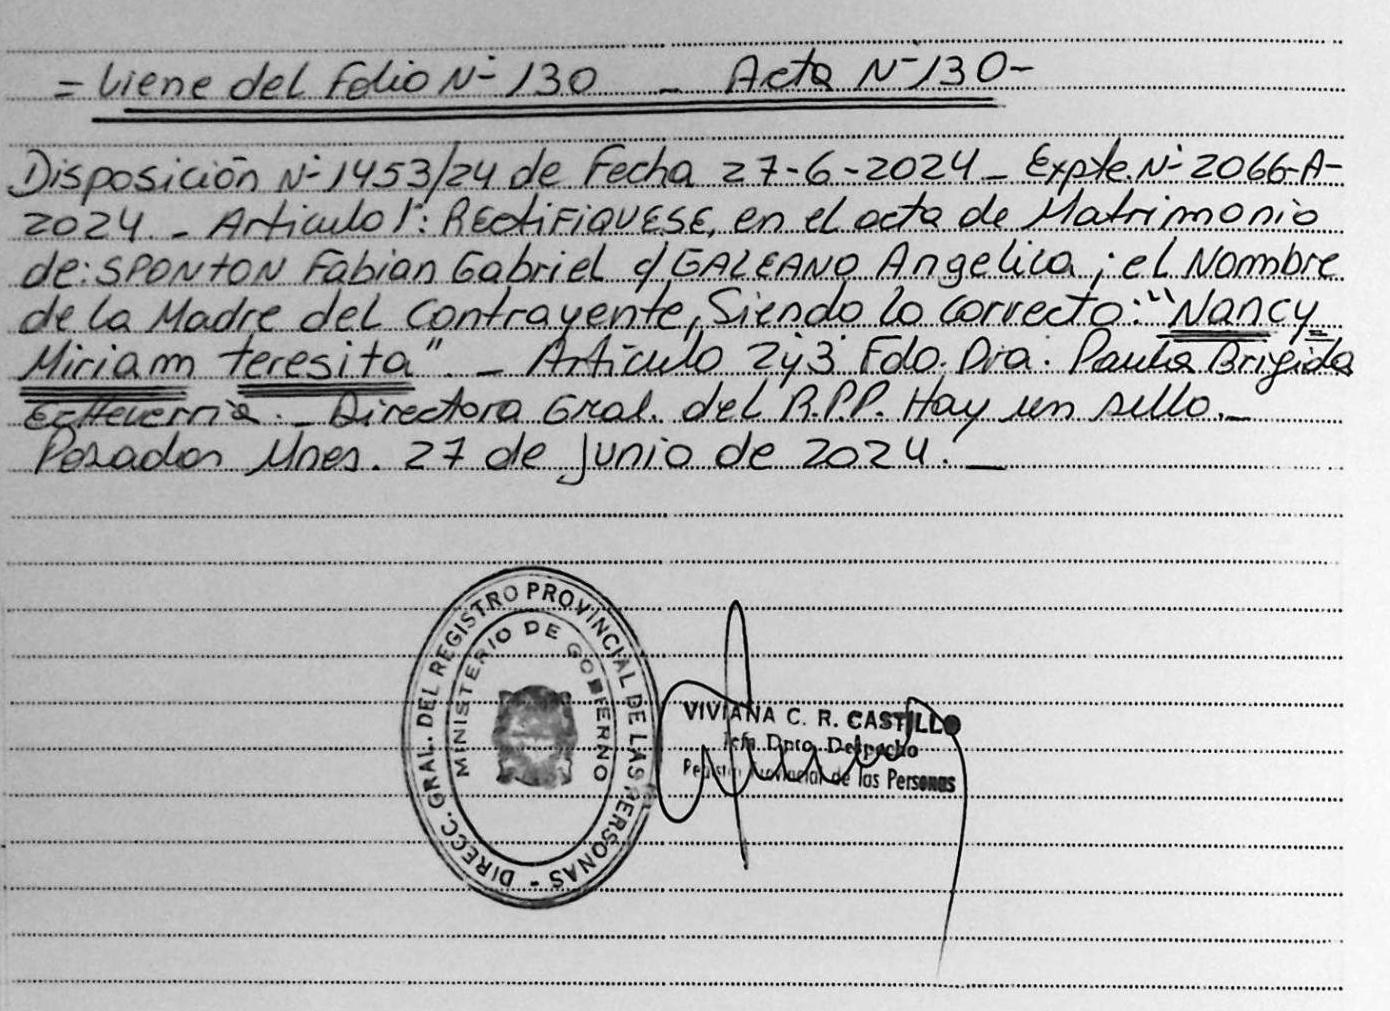 = Viene del Folio N- 130 - Acta N- 130-
Disposición N- 1453/24 de Fecha 27-6-2024 - Expte. N- 2066-A-
2024. - Artículo 1°: RECtiFiQUESE, en el acta de Matrimonio
de: SPONtON Fabian Gabriel c/ GALEANO Angelica ; el Nombre
de la Madre del Contrayente, Siendo lo correcto: "Nancy
Miriam teresita". - Artículo 2 y 3 Fdo. Dra. Paula Brigida
Echeverria. - Directora Gral. del R.P.P. Hay un sello. -
Posadas Mnes. 27 de Junio de 2024. -
DIRECC. GRAL. DEL REGISTRO PROVINCIAL DE LAS PERSONAS -
MINISTERIO DE GOBIERNO
VIVIANA C. R. CASTILLO
Jefa Dpto. Despacho
Registro Provincial de las Personas